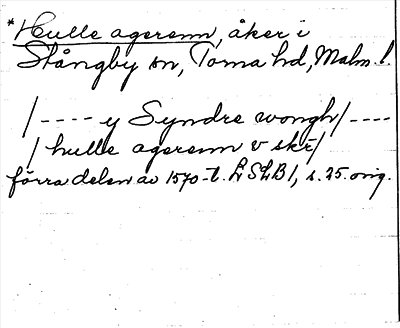 *Hulle agerenn, åker i
Stångby sn, Torna hd, Malm. l.
/---- y Syndre wongh/----
/hulle agerenn v skr/
förra delen av 1570-t. LSLB1, s. 25. orig.